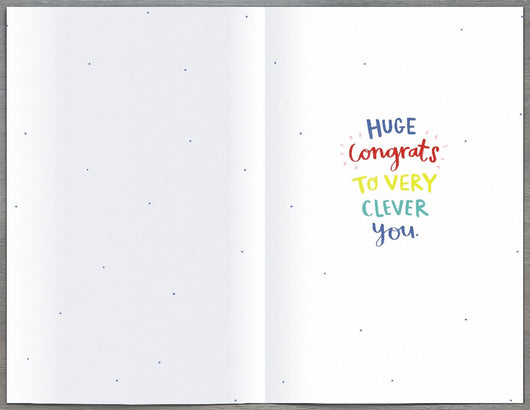 HUGE
Congrats
TO VERY
CLEVER
you.